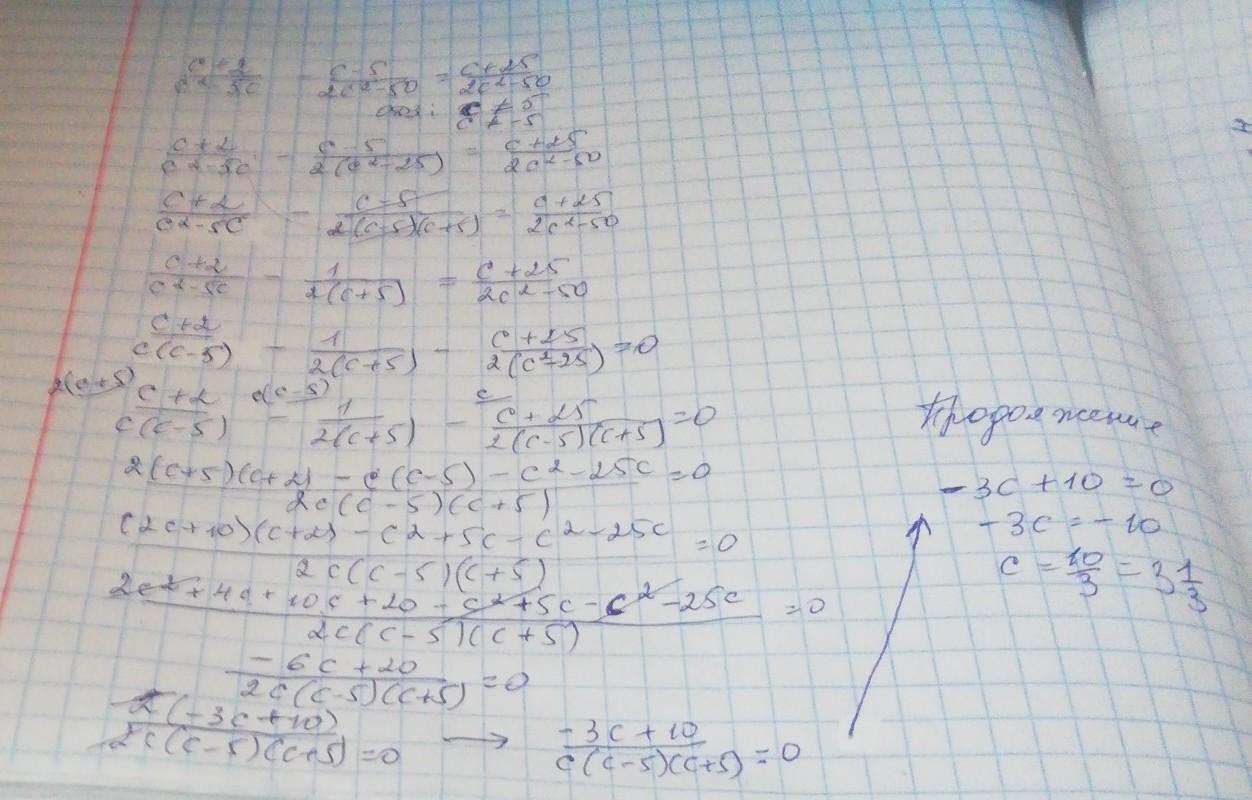 c+2/c²-5c - c-5/2c²-50 = c+25/2c²-50
c ≠ 5
c ≠ -5
c+2/c²-5c - c-5/2(c²-25) = c+25/2c²-50
c+2/c²-5c - c-5/2(c-5)(c+5) = c+25/2c²-50
c+2/c²-5c - 1/2(c+5) = c+25/2c²-50
c+2/c(c-5) - 1/2(c+5) - c+25/2(c²-25) = 0
2(c+5) c+2/c(c-5) - c(c-5) 1/2(c+5) - c c+25/2(c-5)(c+5) = 0
2(c+5)(c+2) - c(c-5) - c²-25c/2c(c-5)(c+5) = 0
(2c+10)(c+2) - c²+5c-c²-25c/2c(c-5)(c+5) = 0
2c²+4c+10c+20-c²+5c-c²-25c/2c(c-5)(c+5) = 0
-6c+20/2c(c-5)(c+5) = 0
2(-3c+10)/2c(c-5)(c+5) = 0 → -3c+10/c(c-5)(c+5) = 0
Продолжение
-3c+10=0
-3c=-10
c = 10/3 = 3 1/3